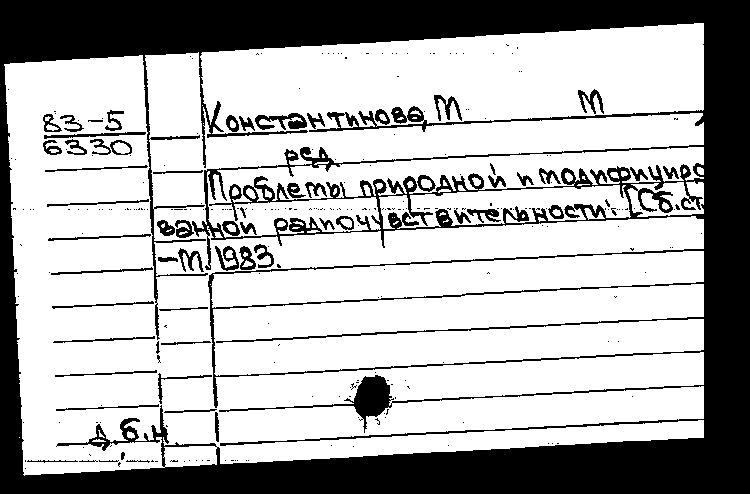 83-5
6330
Константинова, М М
ред.
Проблемы природной и модифициро
ванной радиочувствительности: [Сб.ст
-М. 1983.
д.б.н.